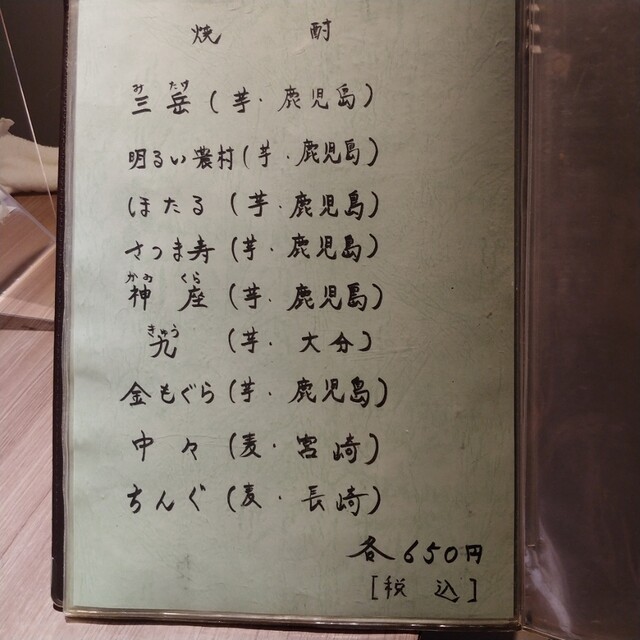 焼 酎
みたけ
三岳(芋・鹿児島)
明るい農村(芋・鹿児島)
ほたる(芋・鹿児島)
さつま寿(芋・鹿児島)
かみくら
神座(芋・鹿児島)
きゅう
(芋・大分)
金もぐら(芋・鹿児島)
中々(麦・宮崎)
ちんぐ(麦・長崎)
各650円
[税 込]